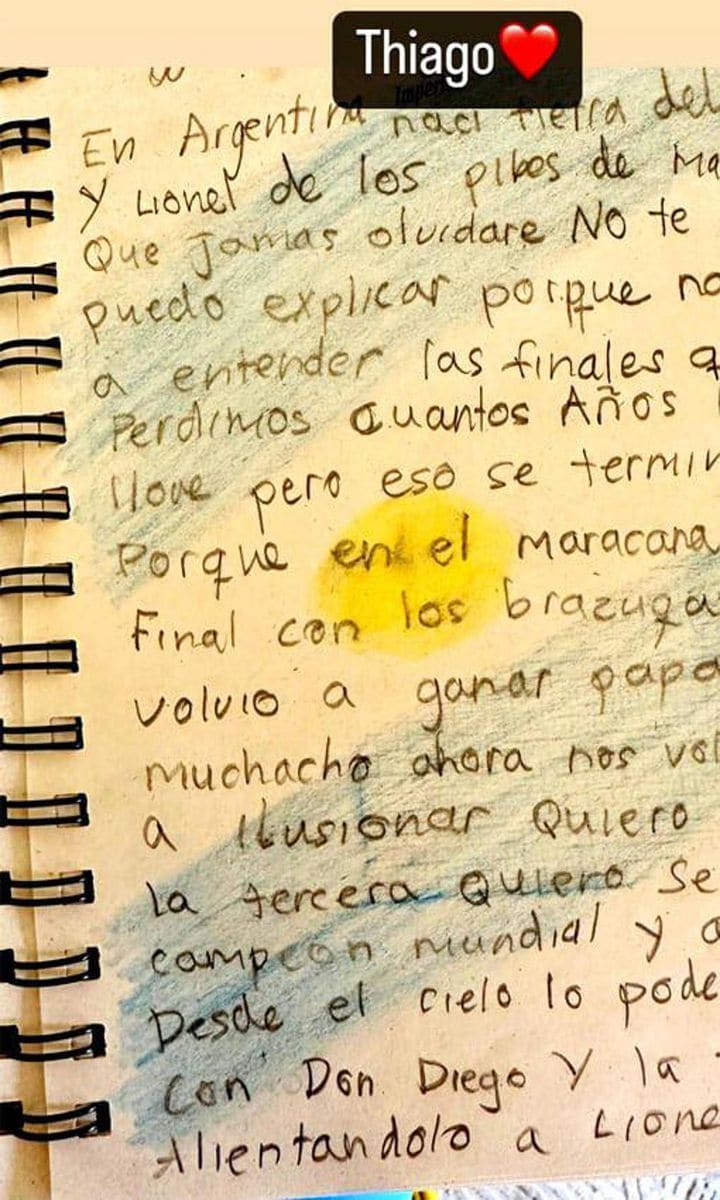 Thiago❤️
En Argentina naci tierra del
Y Lionel de los pibes de Ma
Que Jamas olvidare NO te
puedo explicar porque no
a entender las finales q
Perdimos cuantos Años
llove pero eso se termin
Porque en el maracana
Final con los brazuga
volvio a ganar papa
muchacho ahora nos vol
a Ilusionar Quiero
la tercera Quiero Se
campeon mundial y a
Desde el cielo lo pode
Con Don Diego Y la
Alientandolo a Lione